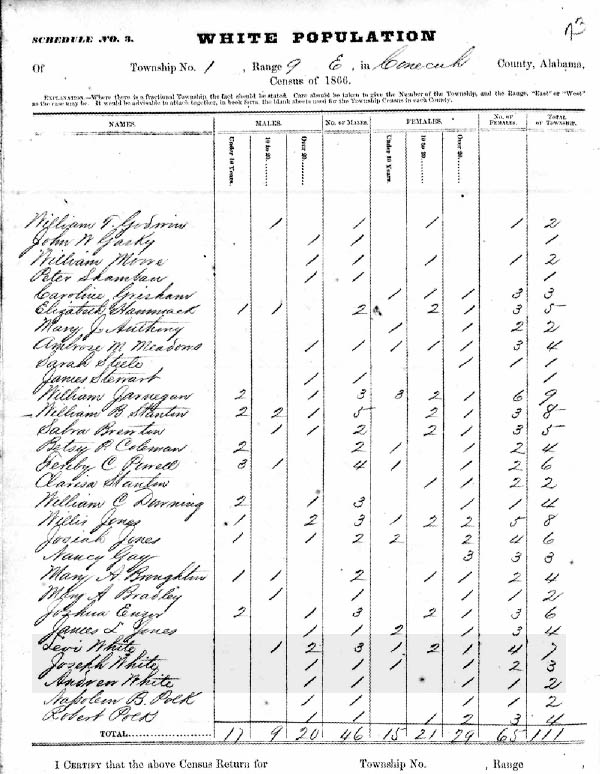 73
SCHEDULE NO. 3. WHITE POPULATION
Of Township No. 1, Range 9 E, in Conecuh County, Alabama,
Census of 1866.
EXPLANATION.—Where there is a fractional Township, the fact should be stated. Care should be taken to give the Number of the Township, and the Range, "East" or "West" as the case may be. It would be advisable to attach together, in book form, the blank sheets used for the Township Census in each County.
NAMES. MALES. No. of Males. FEMALES. No. of Females. Total of Township.
Under 10 Years. 10 to 20. Over 20. Under 10 Years. 10 to 20. Over 20.
William T. Godwin 1 1 1 1 2
John W Gasky 1 1 1
William Moore 1 1 1 1 2
Peter 1 1 1
Caroline Grisham 1 1 1 3 3
Elizabeth Hammack 1 1 2 2 1 3 5
Mary J. Anthony 1 1 2 2
Ambrose M. Meadows 1 1 1 1 1 3 4
Sarah Steele 1 1 1
James Stewart 1 1 1
William Jarnegan 2 1 3 3 2 1 6 9
William B Stanton 2 2 1 5 2 1 3 8
Sabra Brewton 1 1 2 2 1 3 5
Betsy P. Coleman 2 2 1 1 2 4
C Powell 3 1 4 1 1 2 6
Clarisa Stanton 1 1 2 2
William C Downing 2 1 3 1 1 4
Willis Jones 1 2 3 1 2 2 5 8
Josiah Jones 1 1 2 2 2 4 6
Nancy Gay 3 3 3
Mary A Broughton 1 1 2 1 1 2 4
Mary A Bradley 1 1 1 1 2
Joshua Enzor 2 1 3 2 1 3 6
James L Jones 1 1 2 1 3 4
Levi White 1 2 3 1 2 1 4 7
Joseph White 1 1 1 1 2 3
Andrew White 1 1 1 1 2
Napoleon B. Polk 1 1 1 1 2
Robert Polk 1 1 1 2 3 4
TOTAL 17 9 20 46 15 21 29 65 111
I CERTIFY that the above Census Return for Township No. , Range